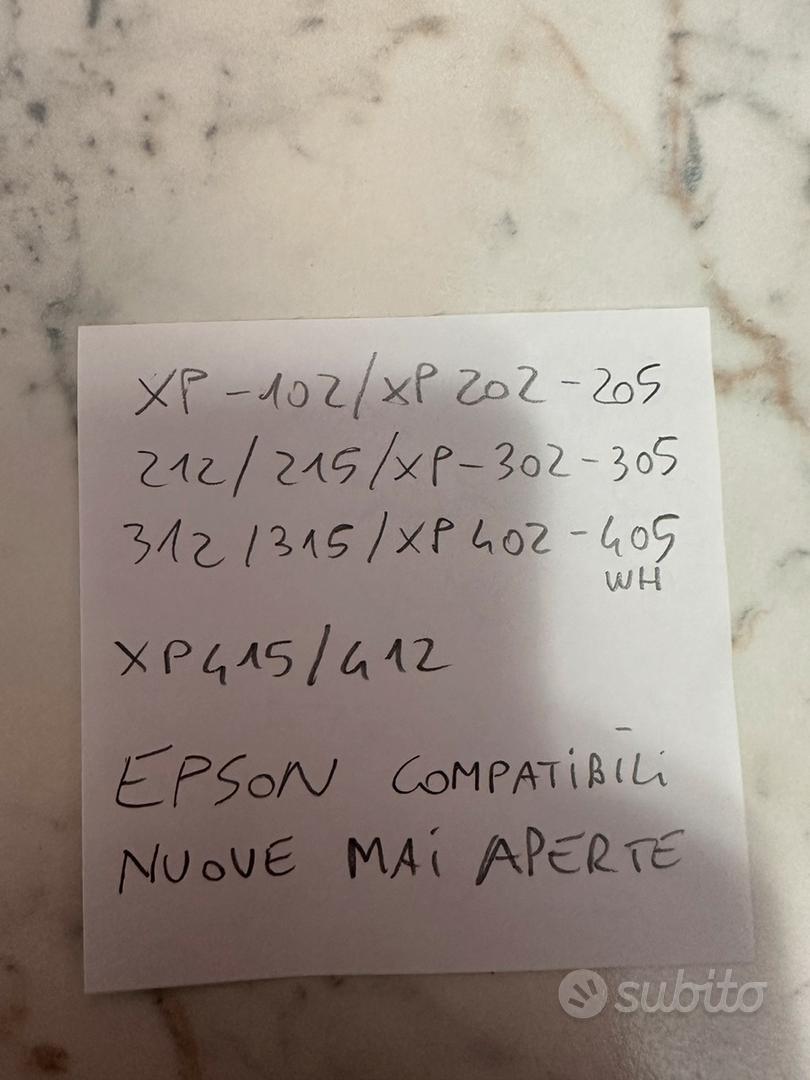 XP-102/XP 202-205
212/215/XP-302-305
312/315/XP 402-405
WH
XP415/412
EPSON COMPATIBILI
NUOVE MAI APERTE
subito